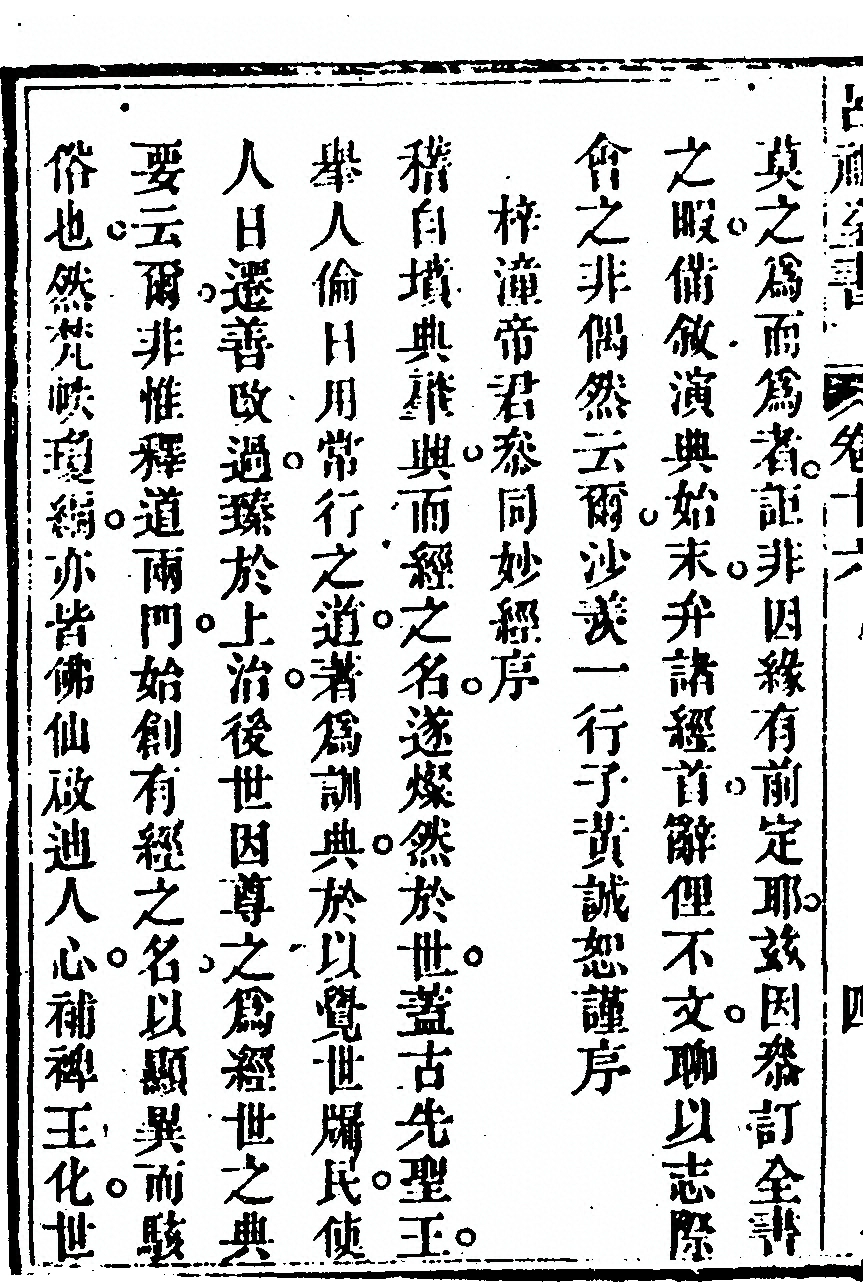 呂祖全書 卷十六 四
莫之爲而爲者詎非因緣有前定耶茲因叅訂全書
之暇備敘演典始末弁諸經首辭俚不文聊以志際
會之非偶然云爾沙羨一行子黃誠恕謹序
梓潼帝君叅同妙經序
稽自墳典肇興而經之名遂燦然於世蓋古先聖王
舉人倫日用常行之道著爲訓典於以覺世牖民使
人日遷善改過臻於上治後世因尊之爲經世之典
要云爾非惟釋道兩門始創有經之名以顯異而駭
俗也然梵帙瓊編亦皆佛仙啟迪人心補裨王化世